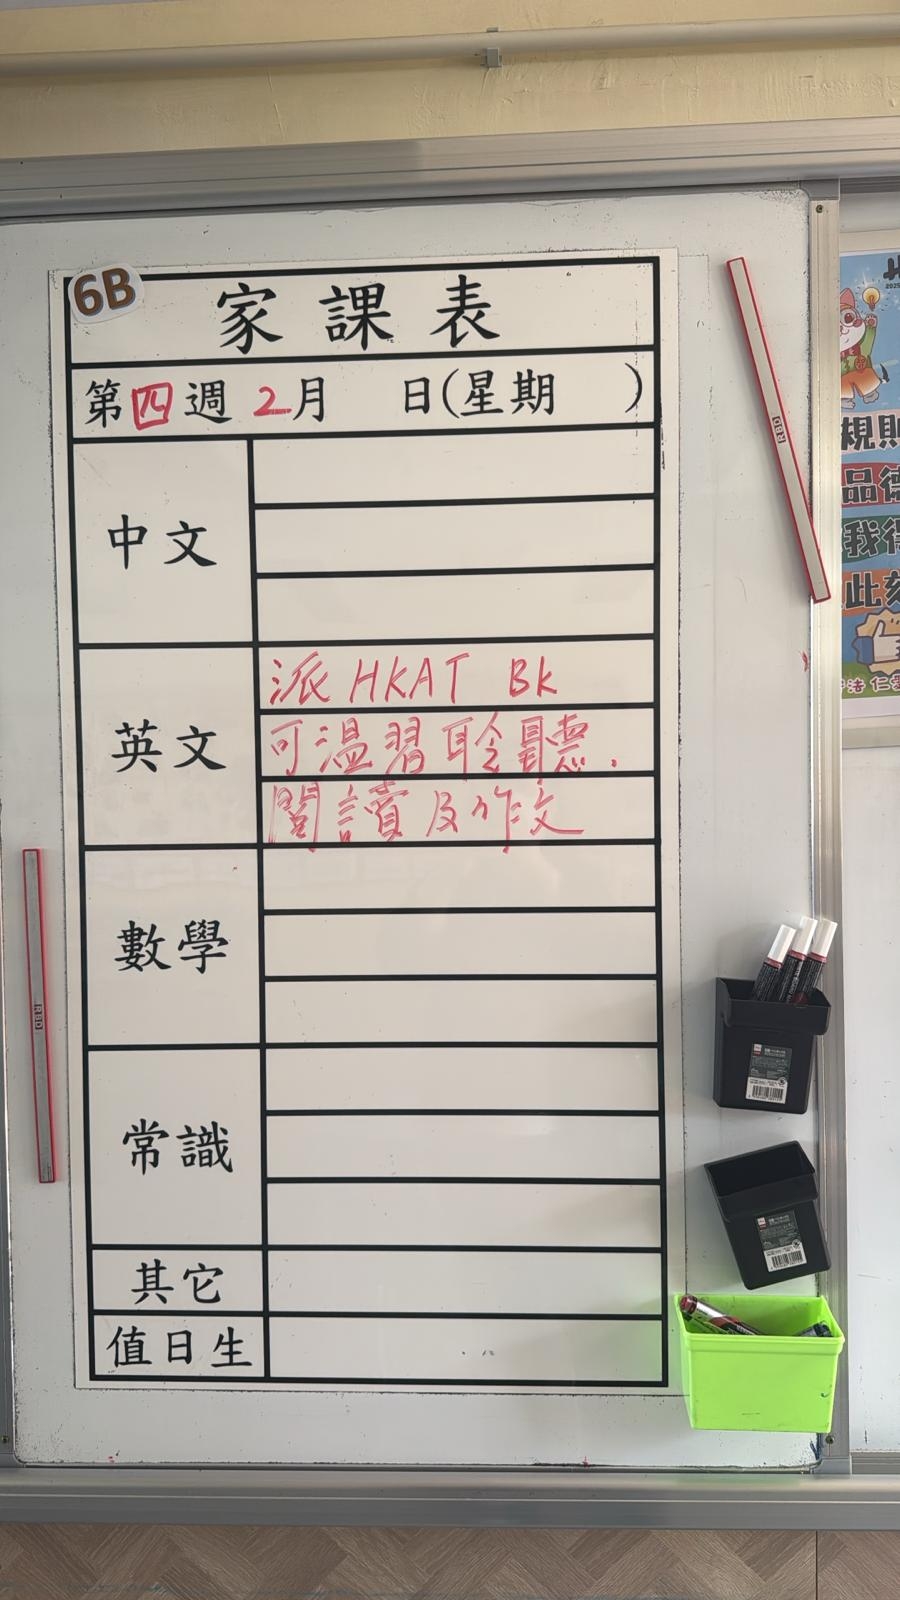 6B
家課表
第四週 2月 日(星期 )
中文
英文
派 HKAT Bk
可溫習聆聽.
閱讀及作文
數學
常識
其它
值日生
RBD
RBD
規則
品德
我得
此刻